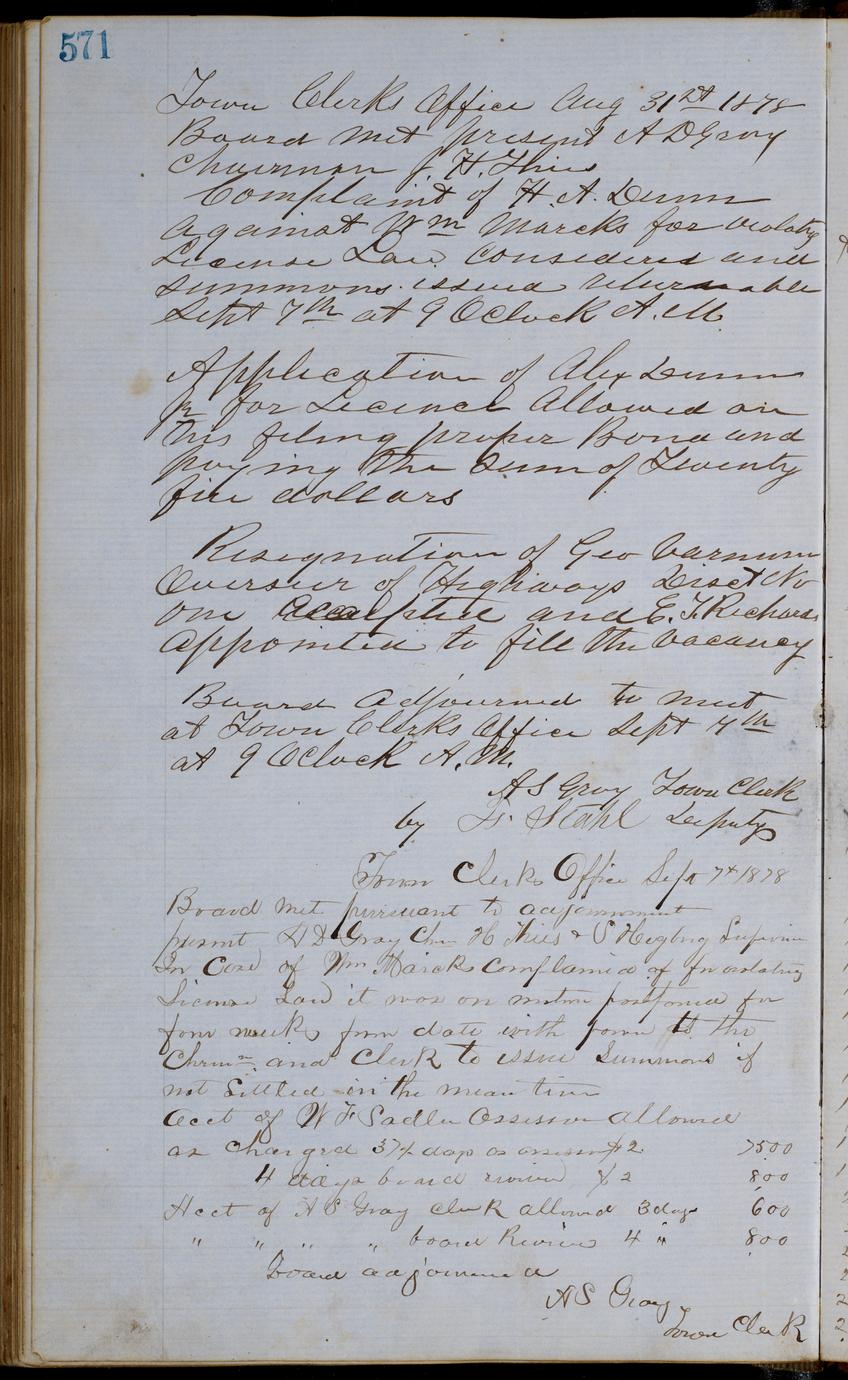 571
Town Clerks Office Aug 31st 1878
Board met present A D Gray
Chairman J. H. Thies
Complaint of H. A. Dunn
against Wm Marcks for violating
License Law considered and
summons issued returnable
Sept 7th at 9 OClock A. M.
Application of Alex Dunn
Jr for Licence Allowed on
his filing proper Bond and
paying the Sum of Twenty
five dollars
Resignation of Geo Varnum
Overseer of Highways Disct No
one accepted and E. T. Richards
appointed to fill the vacancy
Board adjourned to meet
at Town Clerks Office Sept 7th
at 9 OClock A. M.
A S Gray Town Clerk
by Stahl Deputy
Town Clerks Office Sept 7th 1878
Board met pursuant to adjournment
present A D Gray Chn H Thies & S Supervisor
In Case of Wm Marcks complained of for violating
License Law it was on motion postponed for
four weeks from date with power to the
Chrmn and Clerk to issue Summons if
not Settled in the mean time
Acct of W F Sadler Assessor allowed
as charged 37½ days as assessor $2 7500
4 days board review $2 800
Acct of A S Gray Clerk allowed 3 days 600
" " " " board Review 4 " 800
Board adjourned
A S Gray
Town Clerk